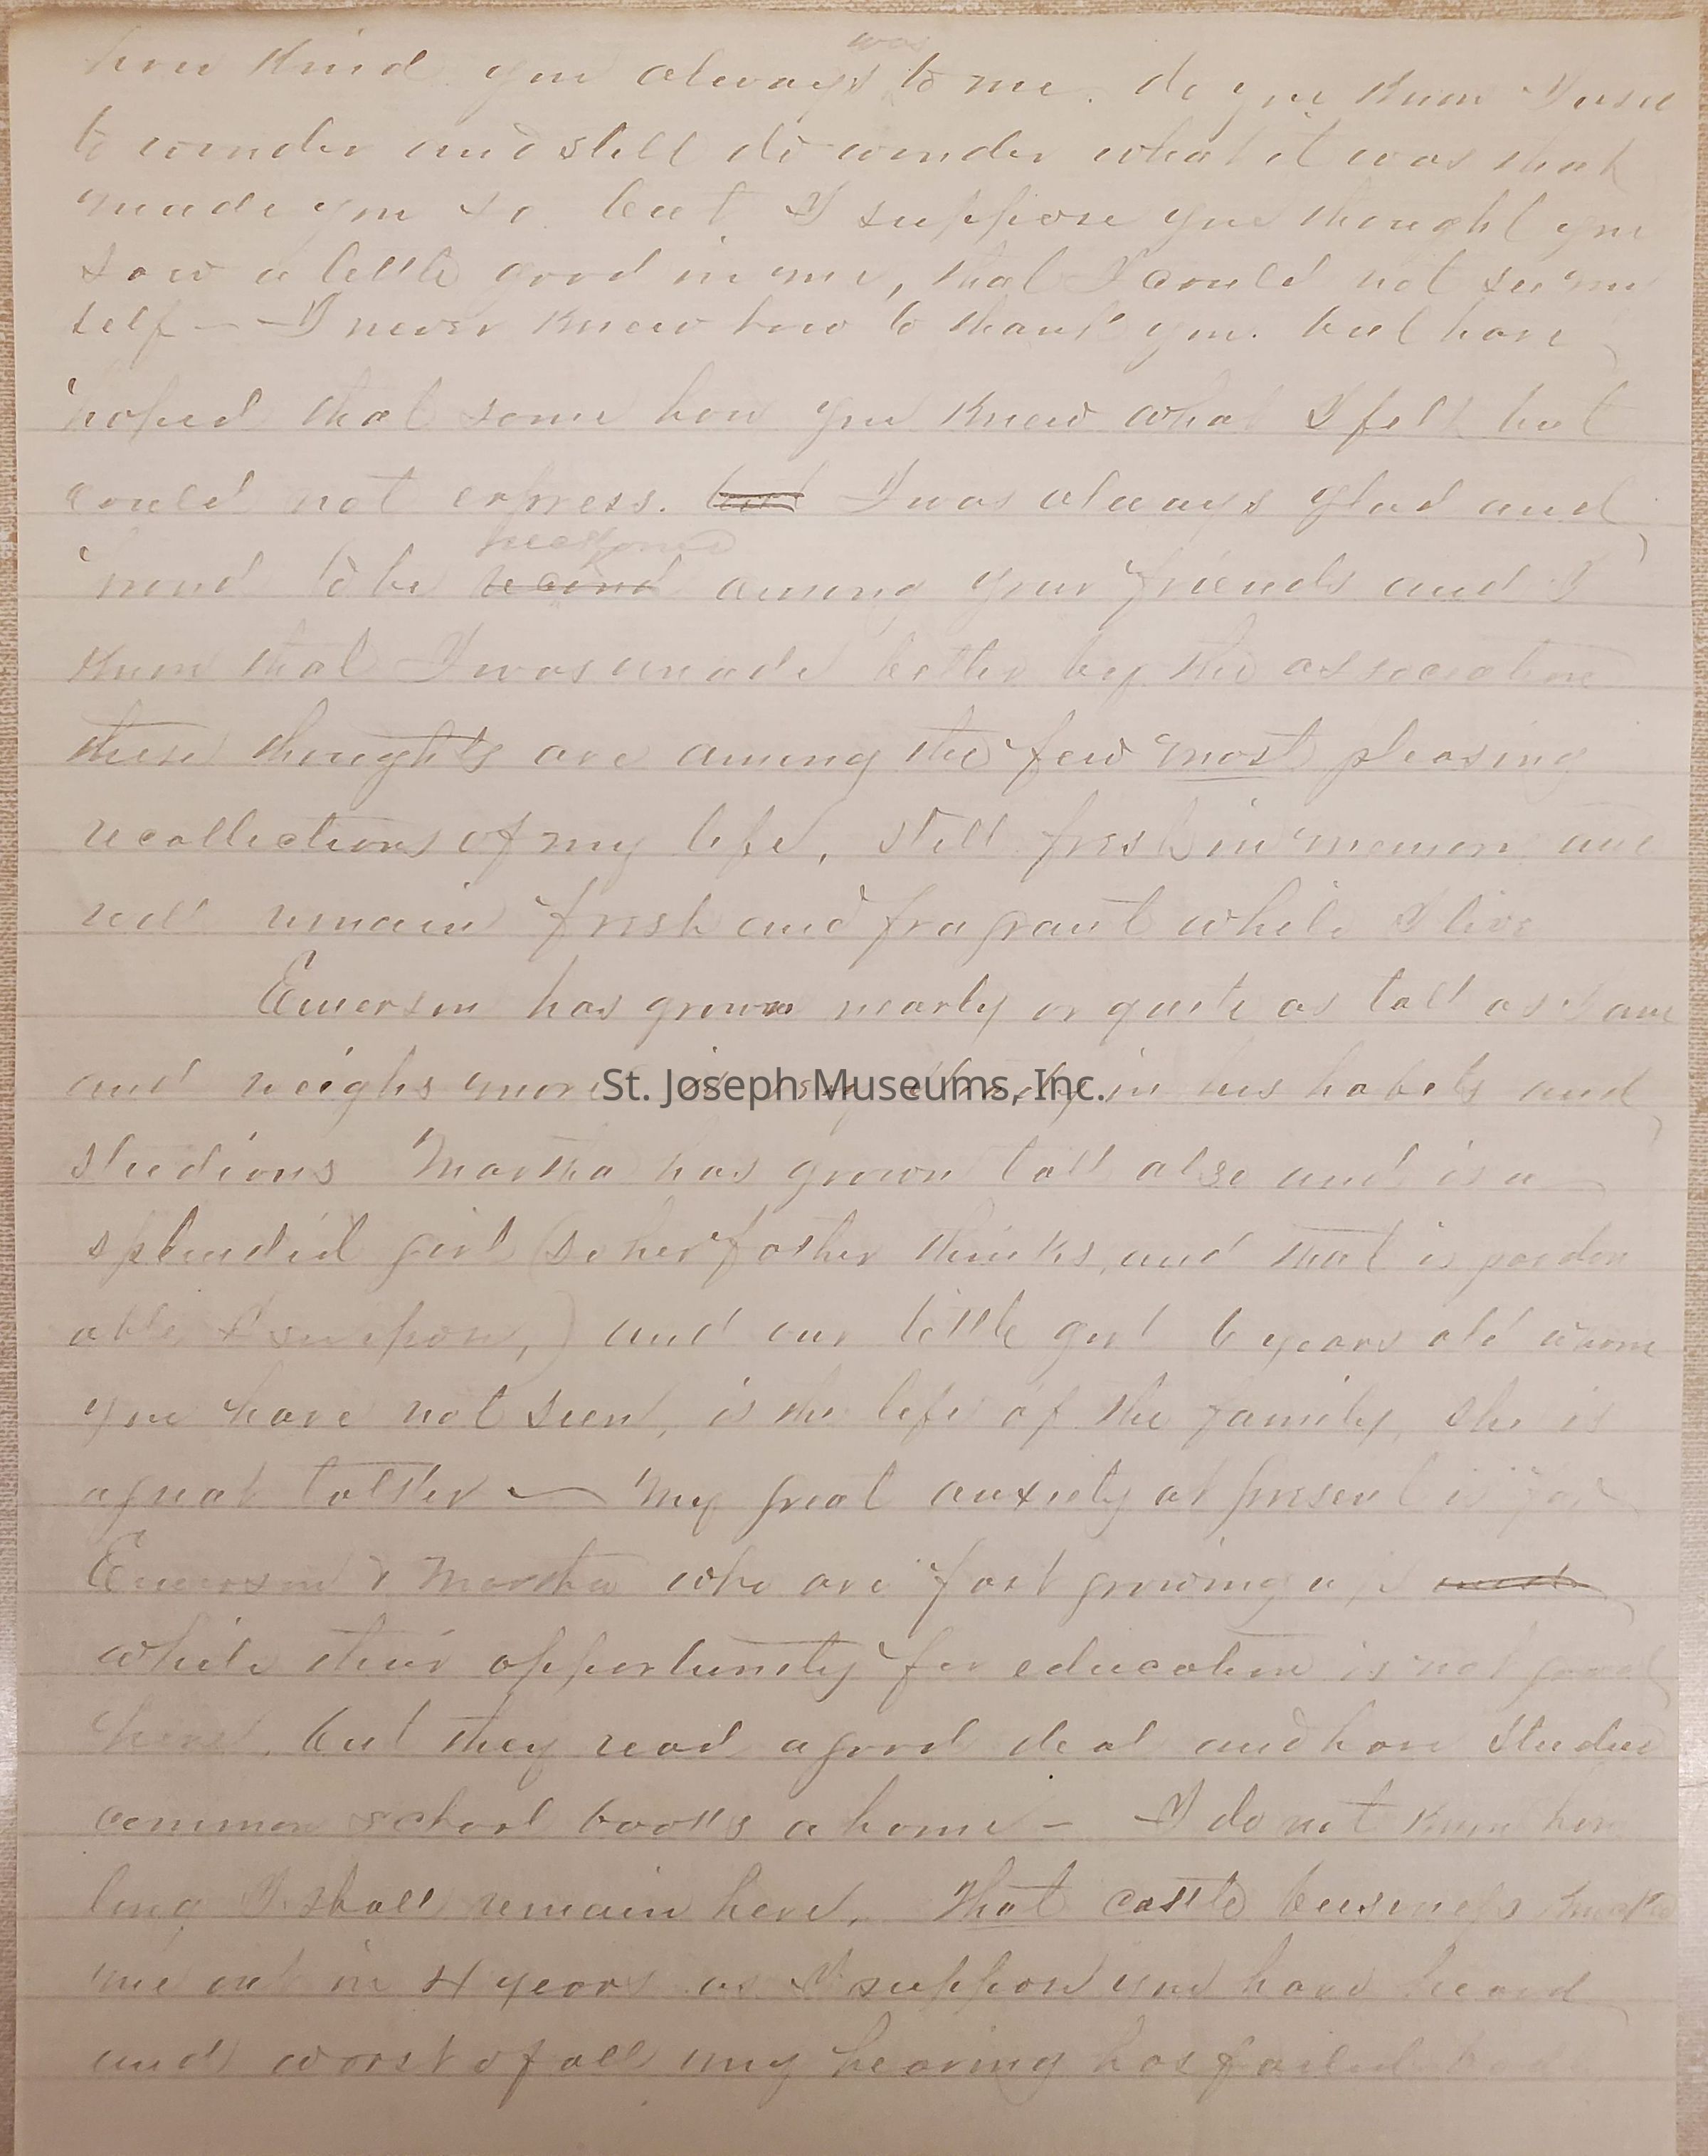 was
how kind you always to me. do you know I use
to wonder and still do wonder what it was that
made you so but I suppose you thought you
saw a little good in me, that I could not see my
self — I never knew how to thank you. but have
hoped that some how you knew what I felt but
could not express. but I was always glad and
reckoned
proud to be among your friends and I
know that I was made better by the association
these thoughts are among the few most pleasing
recollections of my life, still fresh in memory and
will remain fresh and fragrant while I live
Emerson has grown nearly or quite as tall as I am
and weighs more in his habits and
St. Joseph Museums, Inc.
studious Martha has grown tall also and is a
splendid girl (so her father thinks, and that is pardon
able I suppose,) and our little girl 6 years old whom
you have not seen, is the life of the family, she is
a great talker — My great anxiety at present is for
Emerson & Martha who are fast growing up
while their opportunity for education is not good
here, but they read a good deal and have studied
common school books a home — I do not know how
long I shall remain here. That cattle business
me out in 4 years as I suppose you have heard
and worst of all my hearing has failed